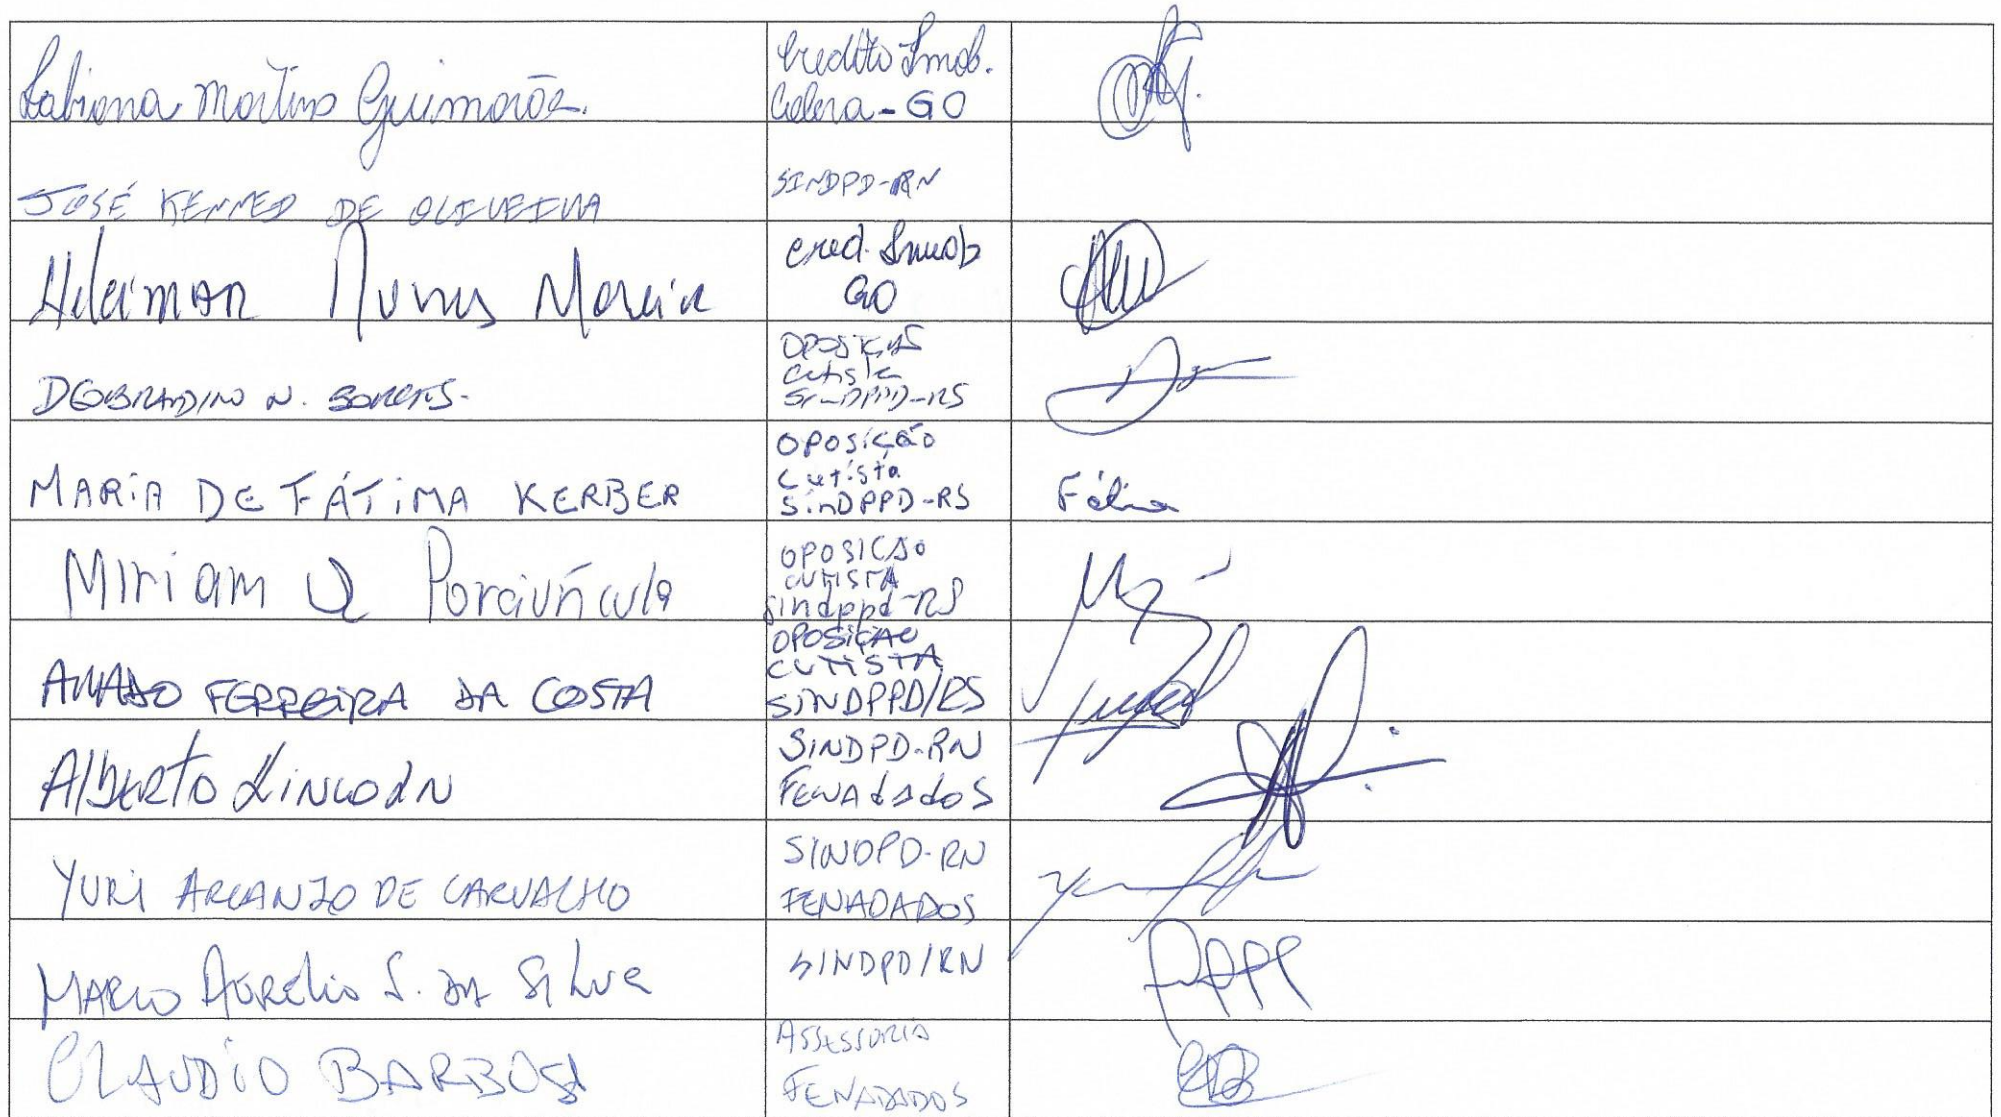 Fabiana Martins Guimarães.
Credito Imob.
Celera - GO
JOSÉ KENNED DE OLIVEIRA
SINDPD-RN
Hileiman Nunes Moreira
Cred. Imob
GO
DEOBRANDINO N. SOARES.
OPOSIÇÃO
Cutista
SINDPPD-RS
MARIA DE FÁTIMA KERBER
OPOSIÇÃO
Cutista
SINDPPD-RS
Fátima
Miriam Q Porciúncula
OPOSIÇÃO
CUTISTA
Sindppd-RS
AMADO FERREIRA DA COSTA
OPOSIÇÃO
CUTISTA
SINDPPD/RS
Alberto Lincoln
SINDPD-RN
FENAdAdOS
YURI ARCANJO DE CARVALHO
SINDPD-RN
FENADADOS
MARCO AURÉLIO S. DA SILVA
SINDPD/RN
CLAUDIO BARBOSA
ASSESSORIA
FENADADOS